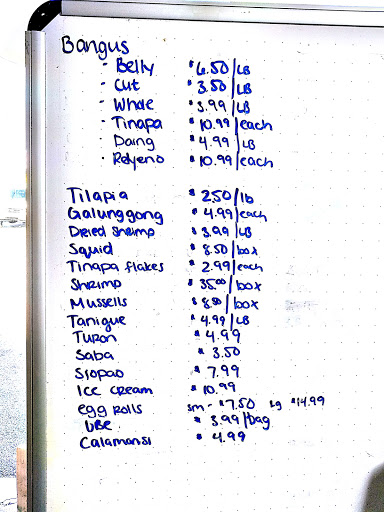 Bangus
- Belly $6.50/LB
- Cut $3.50/LB
- Whole $3.99/LB
- Tinapa $10.99/each
- Daing $4.99/LB
- Relyeno $10.99/each
Tilapia $2.50/lb
Galunggong $4.99/each
Dried Shrimp $3.99/LB
Squid $8.50/box
Tinapa flakes $2.99/each
Shrimp $35.00/box
Mussells $8.50/box
Tanigue $4.99/LB
Turon $4.99
Saba $3.50
Siopao $7.99
Ice cream $10.99
egg rolls sm - $7.50 lg $14.99
UBE $3.99/bag
Calamansi $4.99